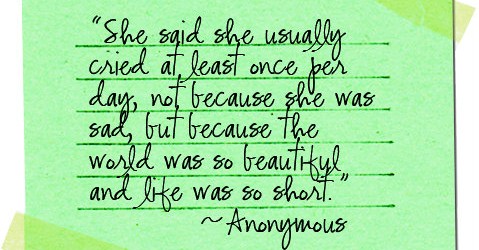 “She said she usually
cried at least once per
day, not because she was
sad, but because the
world was so beautiful
and life was so short.”
~Anonymous